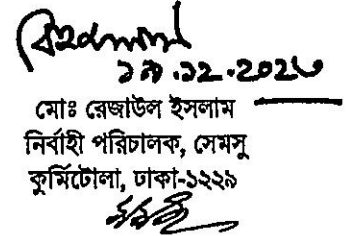 ১৯.১২.২০২৩
মোঃ রেজাউল ইসলাম
নির্বাহী পরিচালক, সেমসু
কুর্মিটোলা, ঢাকা-১২২৯